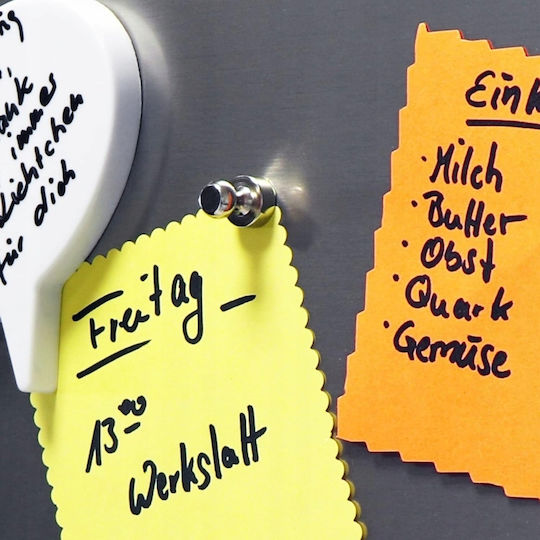 immer
für dich
Freitag
13⁰⁰
Werkstatt
Eink
· Milch
· Butter
· Obst
· Quark
· Gemüse